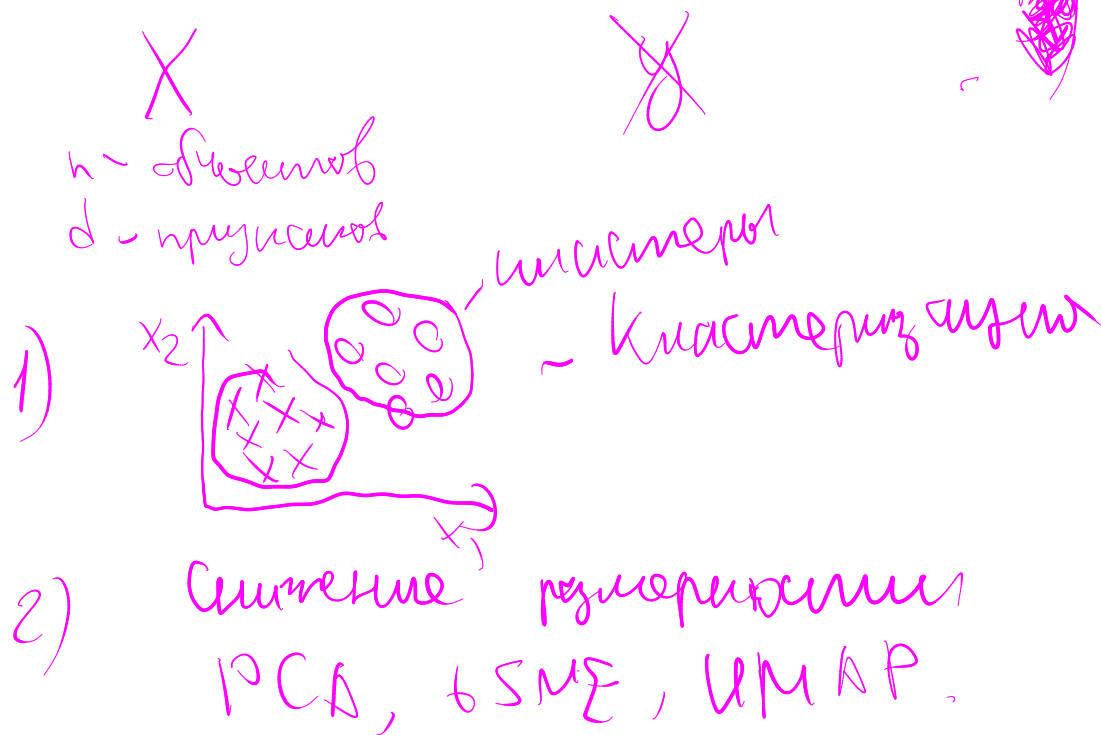 X y
n - объектов
d - признаков
кластеры
1) x2 ~ Кластеризация
x1
2) Снижение размерности
PCA, tSNE, UMAP.